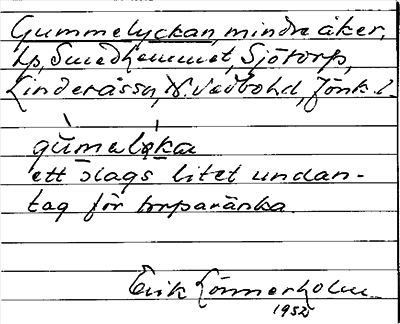 Gummelyckan, mindre åker,
tp, Smedhemmet, Sjötorp,
Linderås sn, N. Vedbo hd, Jönk. l.
gumeløka
ett slags litet undan-
tag för torparänka.
Erik Lönnerholm
1932